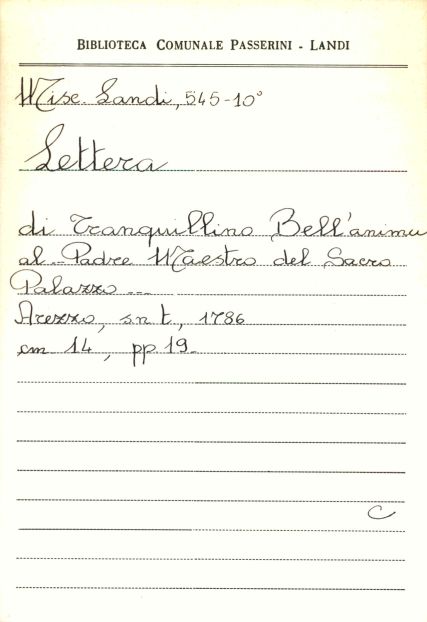 BIBLIOTECA COMUNALE PASSERINI - LANDI
Misc. Landi, 545-10°
Lettera
di Tranquillino Bell'animu
al... Padre Maestro del Sacro
Palazzo ...
Arezzo, s.n.t, 1786
cm 14, pp 19.
C